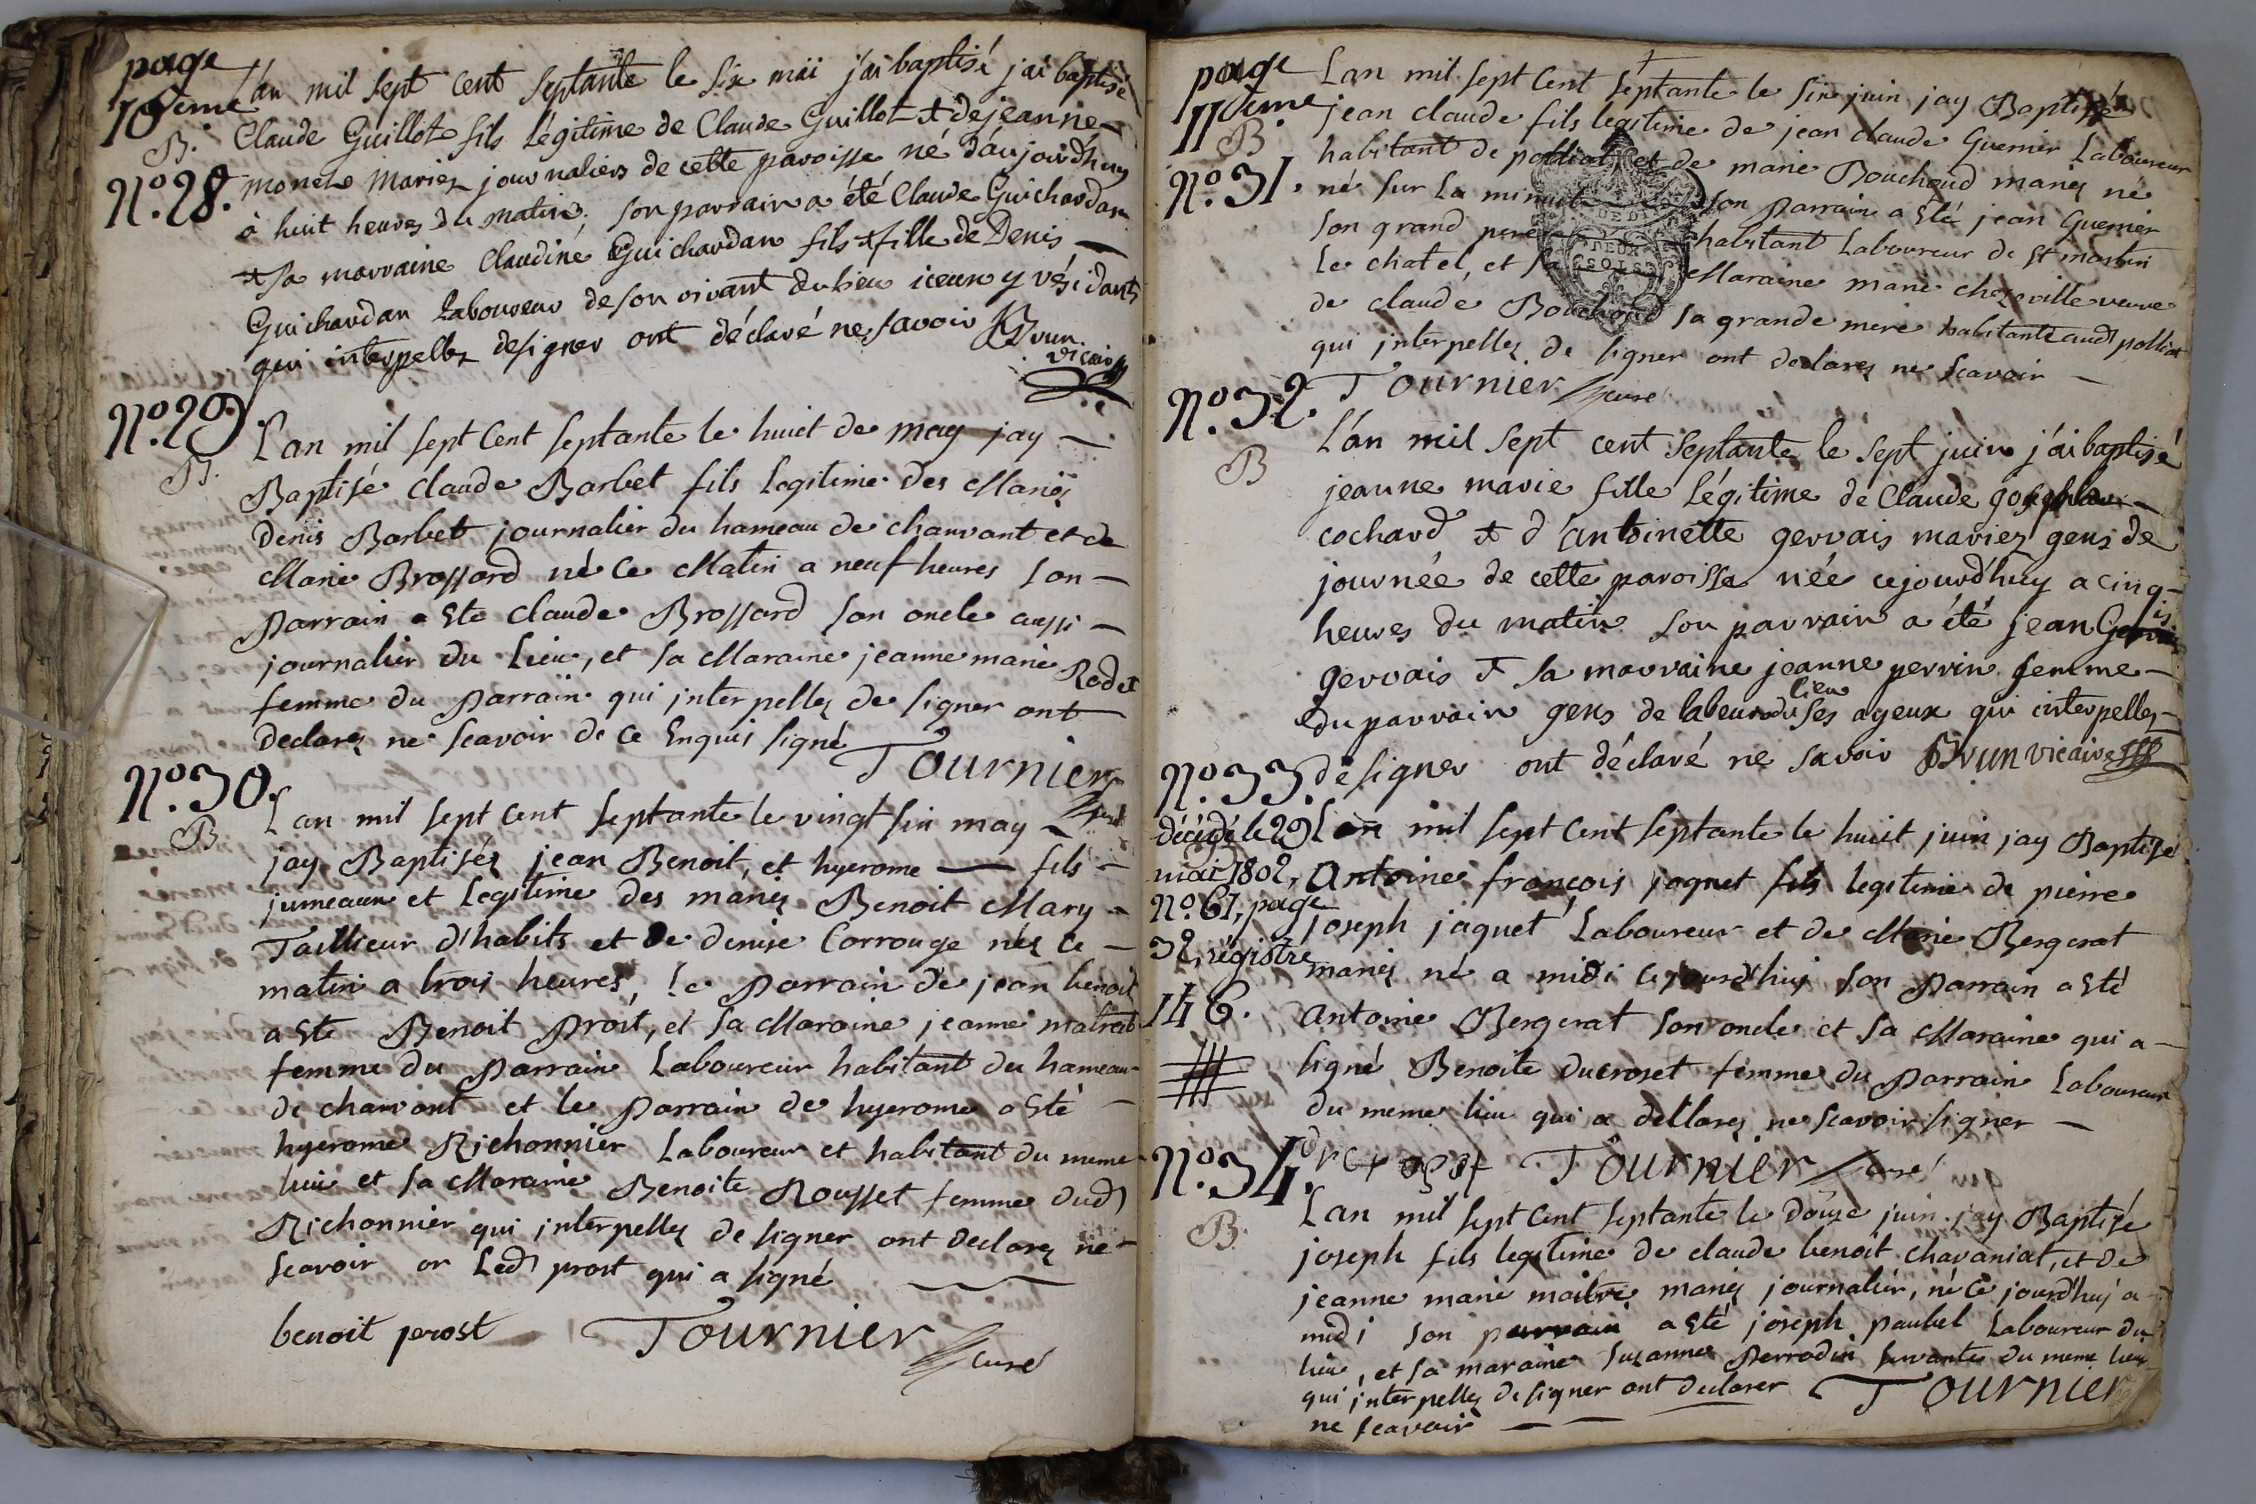 page
10eme
L'an mil sept cent septante le six mäi j'ai baptisé j'ai baptisé
B. Claude Guillot fils légitime de Claude Guillot & de jeanne
N°. 28. mariez journaliers de cette paroisse né d'aujourd'huy
à huit heures du matin. son parrain a été Claude Guichardan
& sa marraine Claudine Guichardan fils & fille de Denis
Guichardan Laboureur de son vivant du lieu iceux y résidants
qui interpellez designer ont déclaré ne savoir Brun
vicaire
N°. 29.
L'an mil sept Cent septante le huict de may jay
B. Baptisé claude Barbet fils Legitime des Mariés
denis Barbet journalier du hameau de chanvant et de
Marie Brossard né ce Matin a neuf heures son
parrain a Eté claude Brossard son oncle aussi
journalier du Lieu, et sa Maraine jeanne marie Rodet
femme du parrain qui interpellez de signer ont
declarez ne scavoir de ce Enquis signé Tournier
curé
N°. 30.
L'an mil sept Cent septante le vingt six may
B jay Baptisés jean Benoit, et hyerome fils
jumeaux et Legitime des mariez Benoit Mary
Taillieur d'habits et de denise Corrouge nés ce
matin a trois heures, le parrain de jean benoit
a Eté Benoit prost, et sa Maraine jeanne
femme du parrain Laboureur habitant du hameau
de chanvant et le parrain de hyerome a Eté
hyerome Richonnier Laboureur et habitant du meme
lieu et sa Maraine Benoite Rousset femme dud
Richonnier qui interpellez de signer ont declarez ne
scavoir or Led prost qui a signé
benoit perost Tournier curé
page
11eme
B
L'an mil sept Cent septante le six juin jay Baptizé
jean claude fils legitime de jean claude Guerrier Laboureur
habitant de polliat et de marie Bouchoud mariez né
N°. 31. né sur La minuit son parrain a Eté jean Guerrier
son grand pere habitant Laboureur de St martin
Le chatel, et sa Maraine marie veuve
de claude Bouchoud sa grande mere habitante aud polliat
qui interpellez de signer ont declarez ne scavoir
DEUX
SOLS
N°. 32. Tournier curé
L'an mil sept cent septante le sept juin j'ai baptisé
B jeanne marie fille légitime de Claude
cochard & d'antoinette gervais mariez gens de
journée de cette paroisse née cejourd'huy a cinq
heures du matin son parrain a été jean
gervais & sa marraine jeanne perrin femme
du parrain gens de labeur du lieu ses ayeux qui interpellez
N°. 33. de signer ont déclaré ne savoir Brun vicaire
décédé le 29 L'an mil sept Cent septante le huit juin jay Baptizé
mai 1802, Antoine françois jaquet fils legitime de pierre
N°. 61, page joseph jaquet Laboureur et de Marie Bergerat
32, régistre mariez né a midi cejourd'huy son parrain a Eté
146. antoine Bergerat son oncle et sa Maraine qui a
signé Benoite ducroset femme du parrain Laboureur
du meme lieu qui a déclarez ne scavoir signer
ducroset Tournier curé
N°. 34.
L'an mil sept Cent septante le douze juin jay Baptizé
B. joseph fils legitime de claude benoit chavaniat, et de
jeanne marie maitre mariez journalier, né ce jourd'huy a
midi son parrain a Eté joseph paubel Laboureur du
lieu, et sa maraine suzanne perrodin servante du meme lieu
qui interpellez de signer ont declarer Tournier
ne scavoir